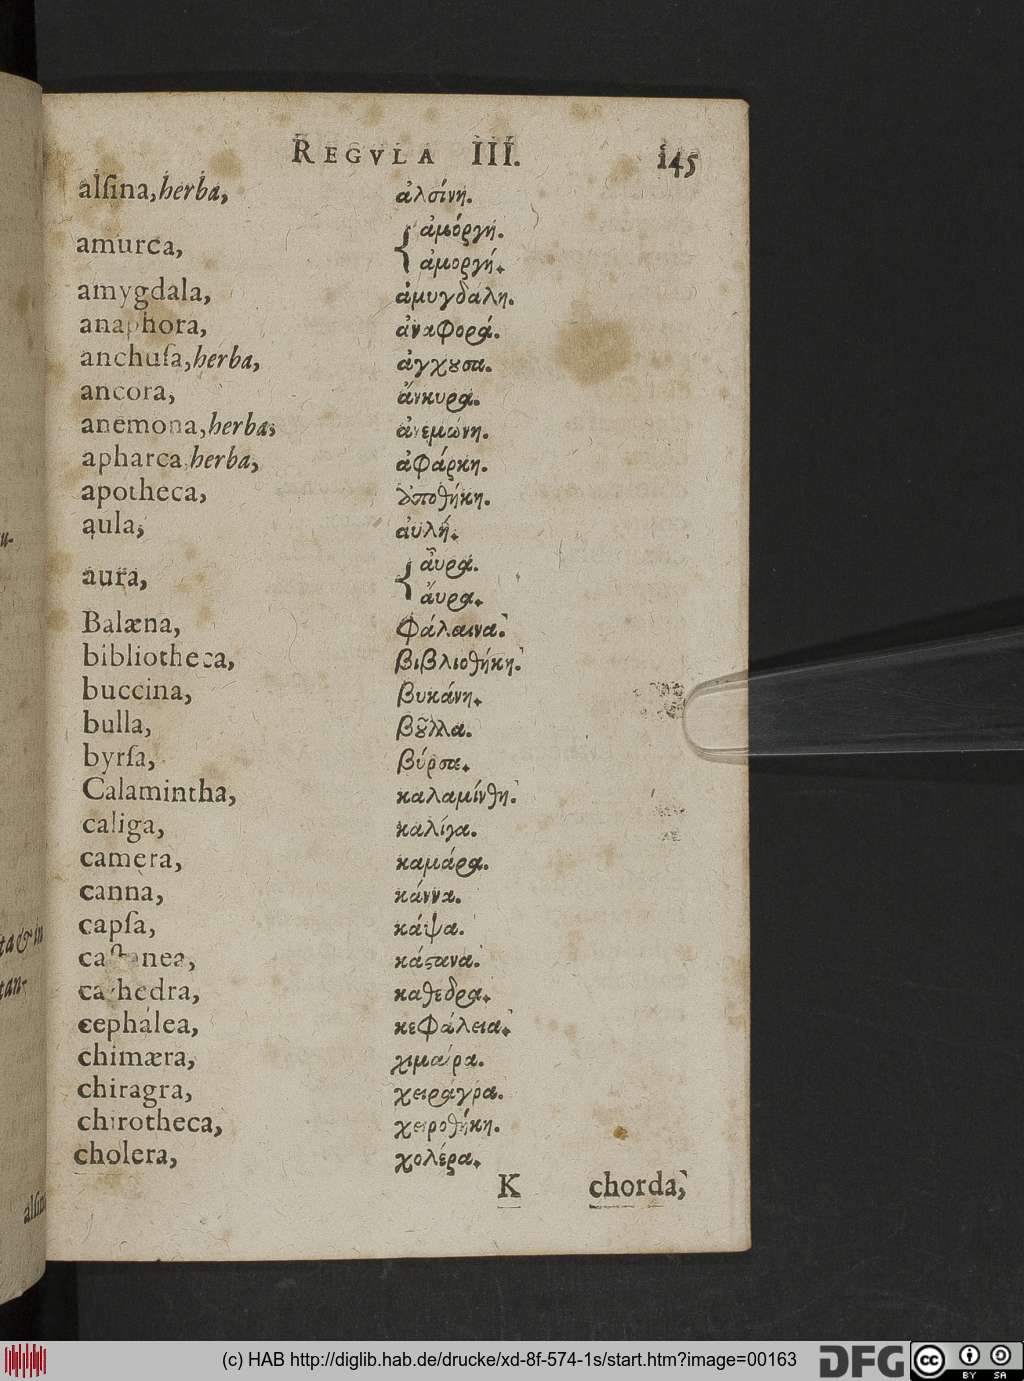 REGVLA III. 145
alſina, herba, ἀλσίνη.
amurca, {ἀμόργη.
ἀμοργή.
amygdala, ἀμυγδαλη.
anaphora, ἀναφορά.
anchuſa, herba, ἀγχȣσα.
ancora, ἄνκυρα.
anemona, herba, ἀνεμώνη.
apharca herba, ἀφάρκη.
apotheca, ἀποθήκη.
aula, ἀυλή.
aura, {ἀῦρα.
ἄυρα.
Balæna, φάλαινα.
bibliotheca, βιβλιοθήκη.
buccina, βυκάνη.
bulla, βȣ͂λλα.
byrſa, βύρσα.
Calamintha, καλαμίνθη.
caliga, καλίγα.
camera, καμάρα.
canna, κάννα.
capſa, κάψα.
caſtanea, κάϛανα.
cathedra, καθεδρα.
cephalea, κεφάλεια.
chimæra, χιμαιρα.
chiragra, χειράγρα.
chirotheca, χειροθήκη.
cholera, χολέρα.
K chorda,
u-
ta & in
tan-
alſina
(c) HAB http://diglib.hab.de/drucke/xd-8f-574-1s/start.htm?image=00163 DFG cc BY SA